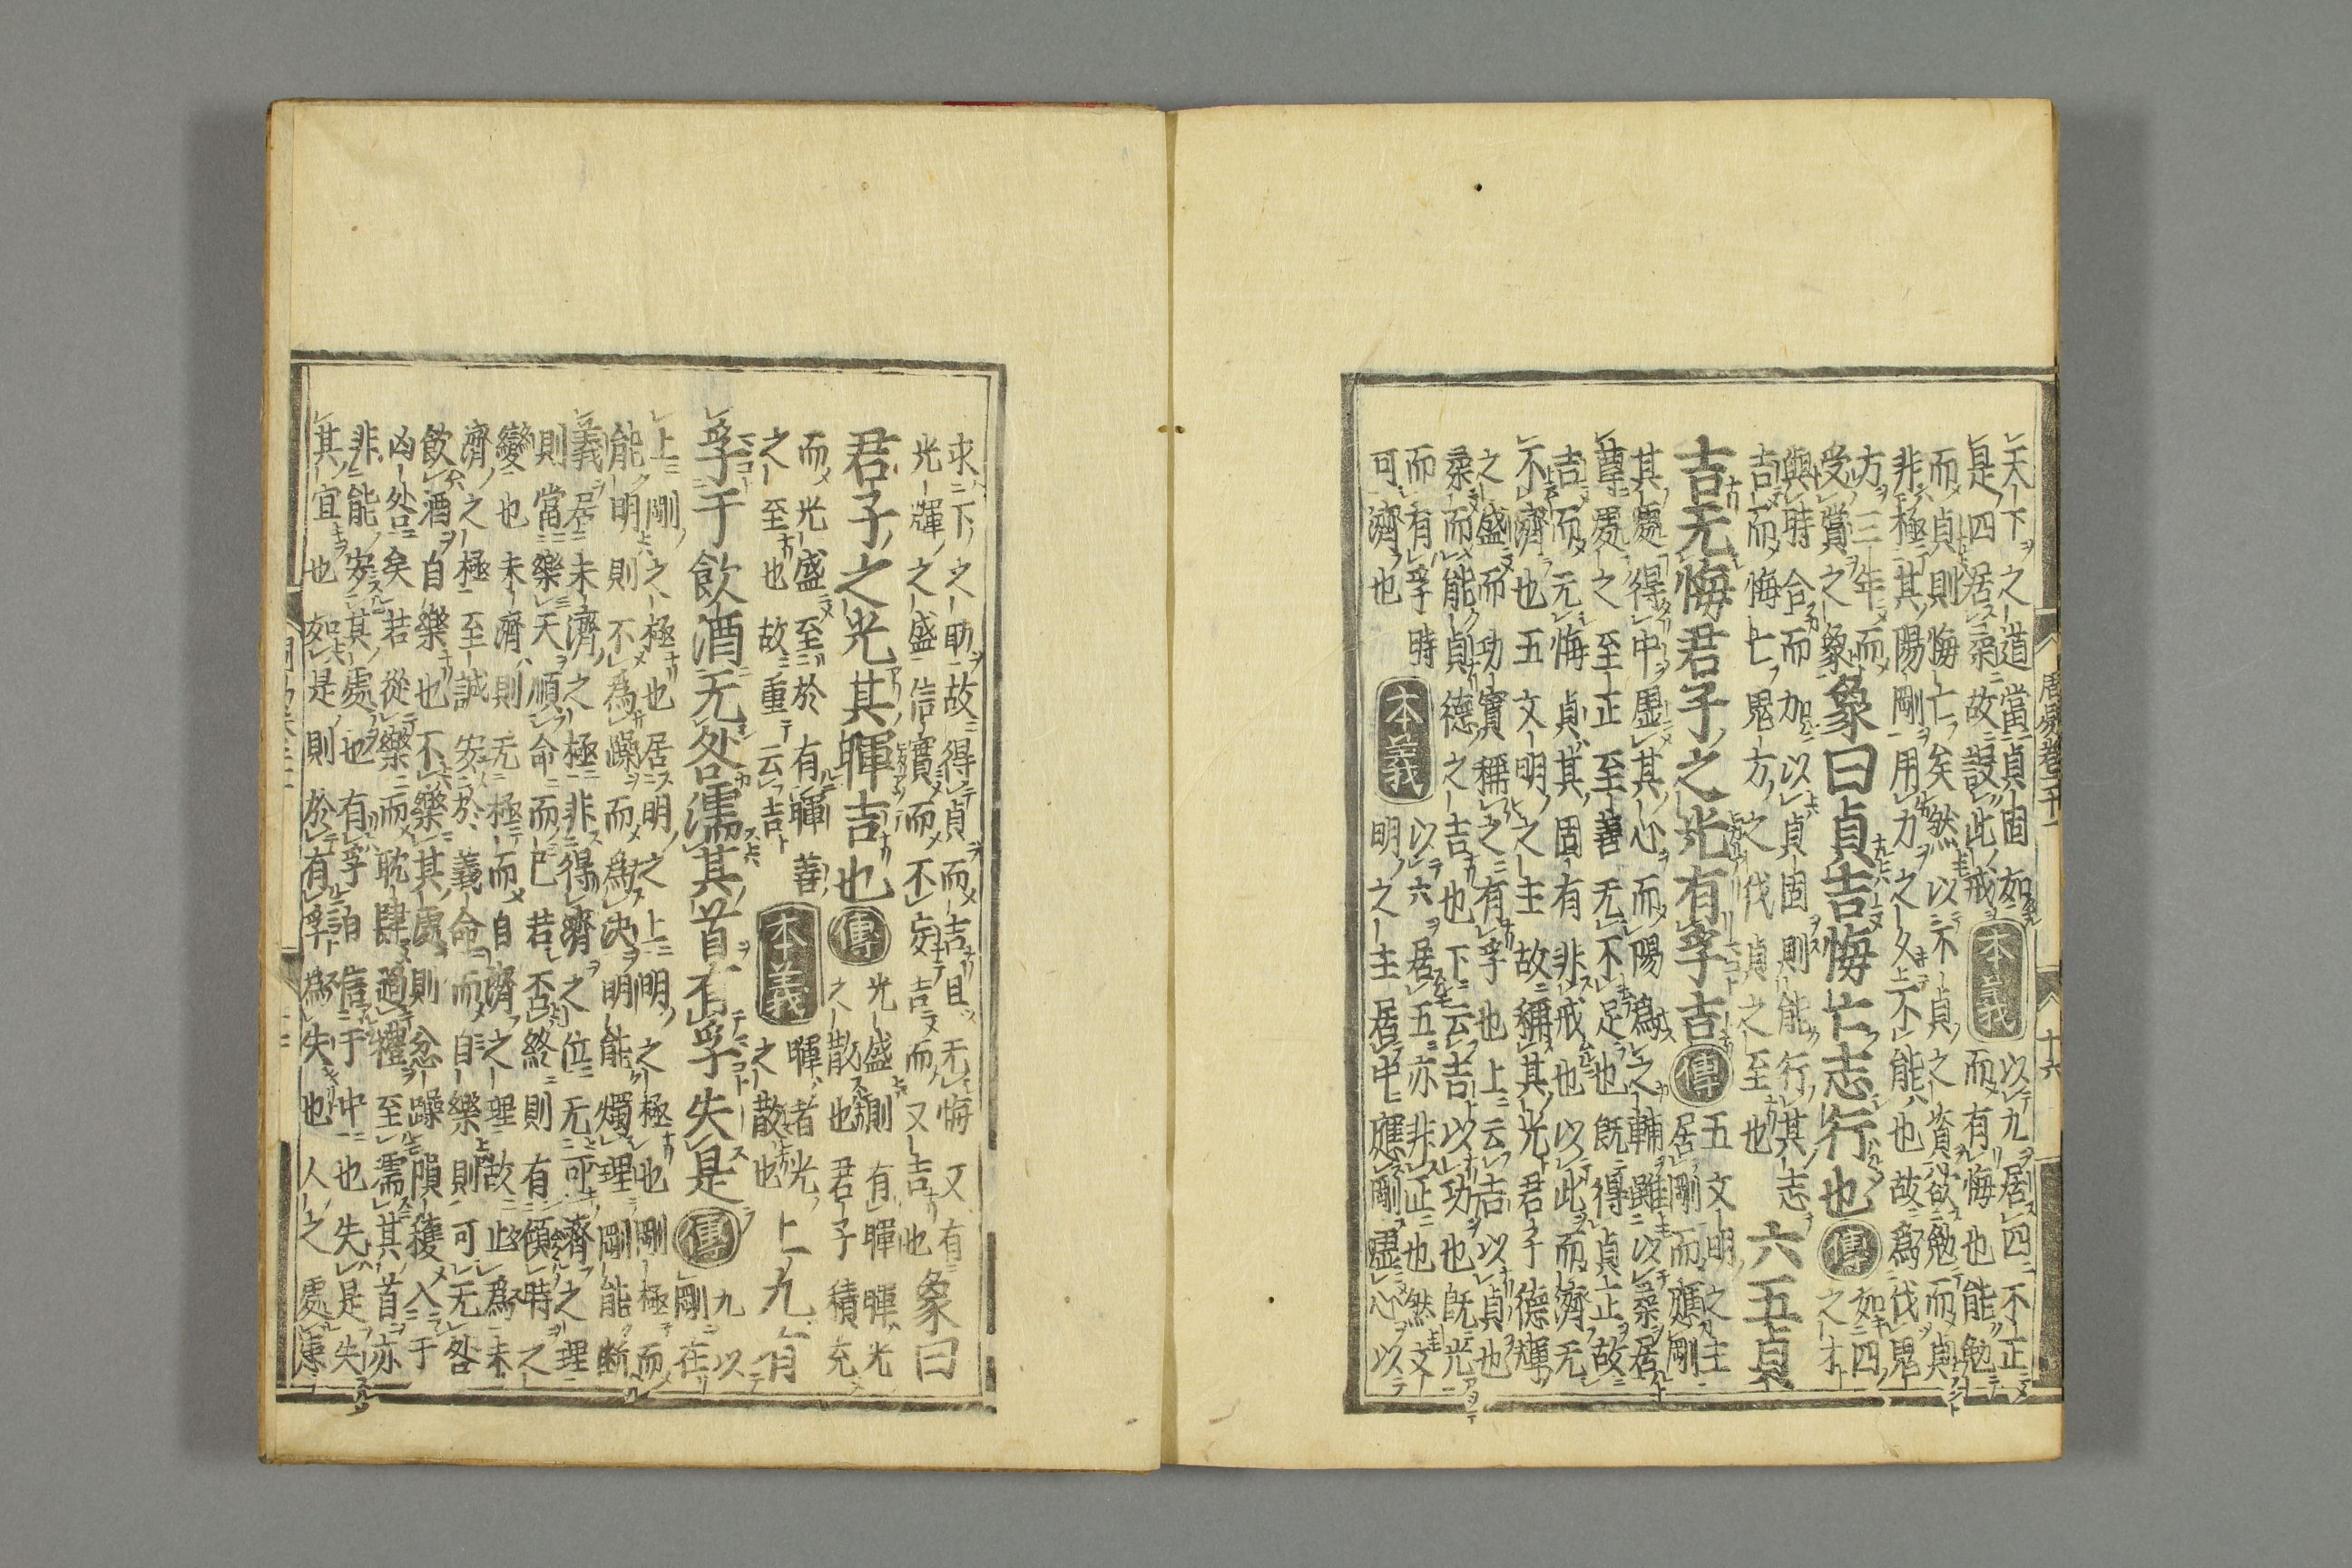 天下之道當貞固如
是四居柔故設此戒
本義
以九居四不正
而有悔也能勉
而貞則悔亡矣然以不貞之資欲勉而貞
非極其陽剛用力之久不能也故爲伐鬼
方三年而
受賞之象
象曰貞吉悔亡志行也
傳
如四
之才
與時合而加以貞固則能行其志
吉而悔亡鬼方之伐貞之至也
六五貞
吉无悔君子之光有孚吉
傳
五文明之主
居剛而應剛
其處得中虛其心而陽爲之輔雖以柔居
尊處之至正至善无不足也既得貞正故
吉而无悔貞其固有非戒也以此而濟无
不濟也五文明之主故稱其光君子德輝
之盛而功實稱之有孚也上云吉以貞也
柔而能貞德之吉也下云吉以功也既光
而有孚時
可濟也
本義
以六居五亦非正也然文
明之主居中應剛虛心以
周易卷
十六
求下之助故得貞而吉且无悔又有
光輝之盛信實而不妄吉而又吉也
象曰
君子之光其暉吉也
傳
光盛則有暉暉光
之散也君子積充
而光盛至於有暉善
之至也故重云吉
本義
暉者光
之散也
上九有
孚于飲酒无咎濡其首有孚失是
傳
九以
剛在
上剛之極也居明之上明之極也剛極而
能明則不爲躁而爲決明能燭理剛能斷
義居未濟之極非得濟之位无可濟之理
則當樂天順命而已若否終則有傾時之
變也未濟則无極而自濟之理故止爲未
濟之極至誠安於義命而自樂則可无咎
飲酒自樂也不樂其處則忿躁隕穫入于
凶咎矣若從樂而耽肆過禮至濡其首亦
非能安其處也有孚自信于中也失是失
其宜也如是則於有孚爲失也人之處患